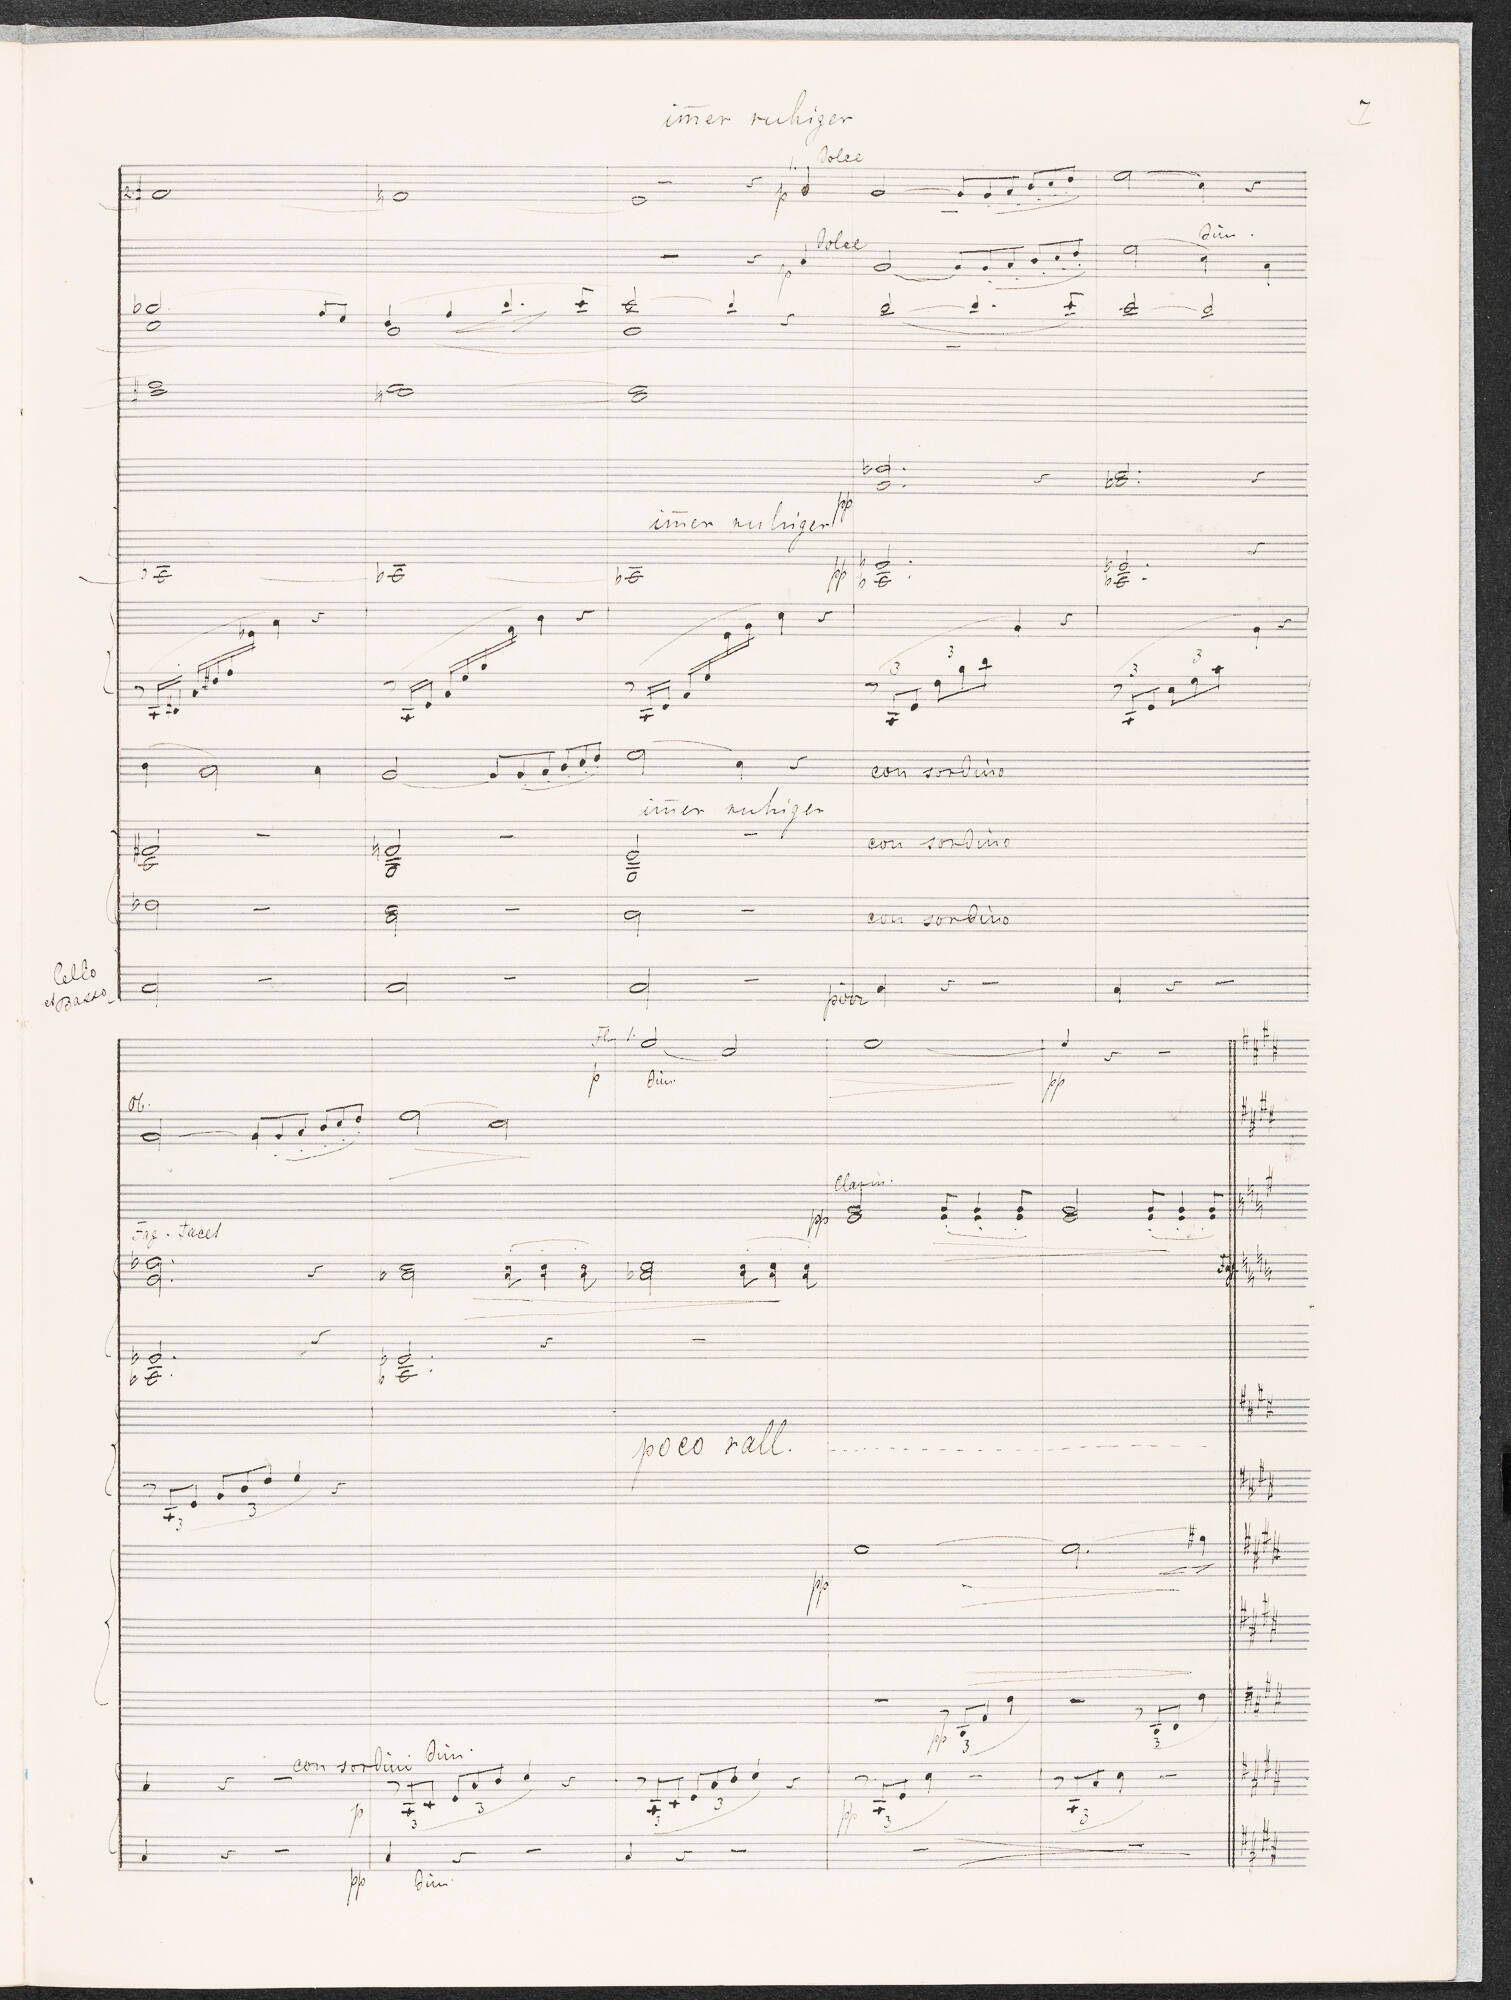 im̄er ruhiger
7
1. dolce
2.
p
dolce
dim.
p
pp
im̄er ruhiger
pp
3
3
3
3
con sordino
im̄er ruhiger
con sordino
con sordino
Cello
et Basso
pizz
Fl. 1.
p dim. pp
Ob.
Clarin.
pp
Fag. tacet
Fag.
poco rall.
3 3
pp
pp 3 3
con sordini dim.
p 3 3 3 3 pp 3 3
pp dim.